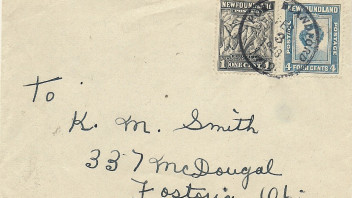 NEWFOUNDLAND NEWFOUNDLAND
POSTAGE POSTAGE POSTAGE
1 ONE CENT 1 4 FOUR CENTS 4
To
K. M. Smith
337 McDougal
Fostoria